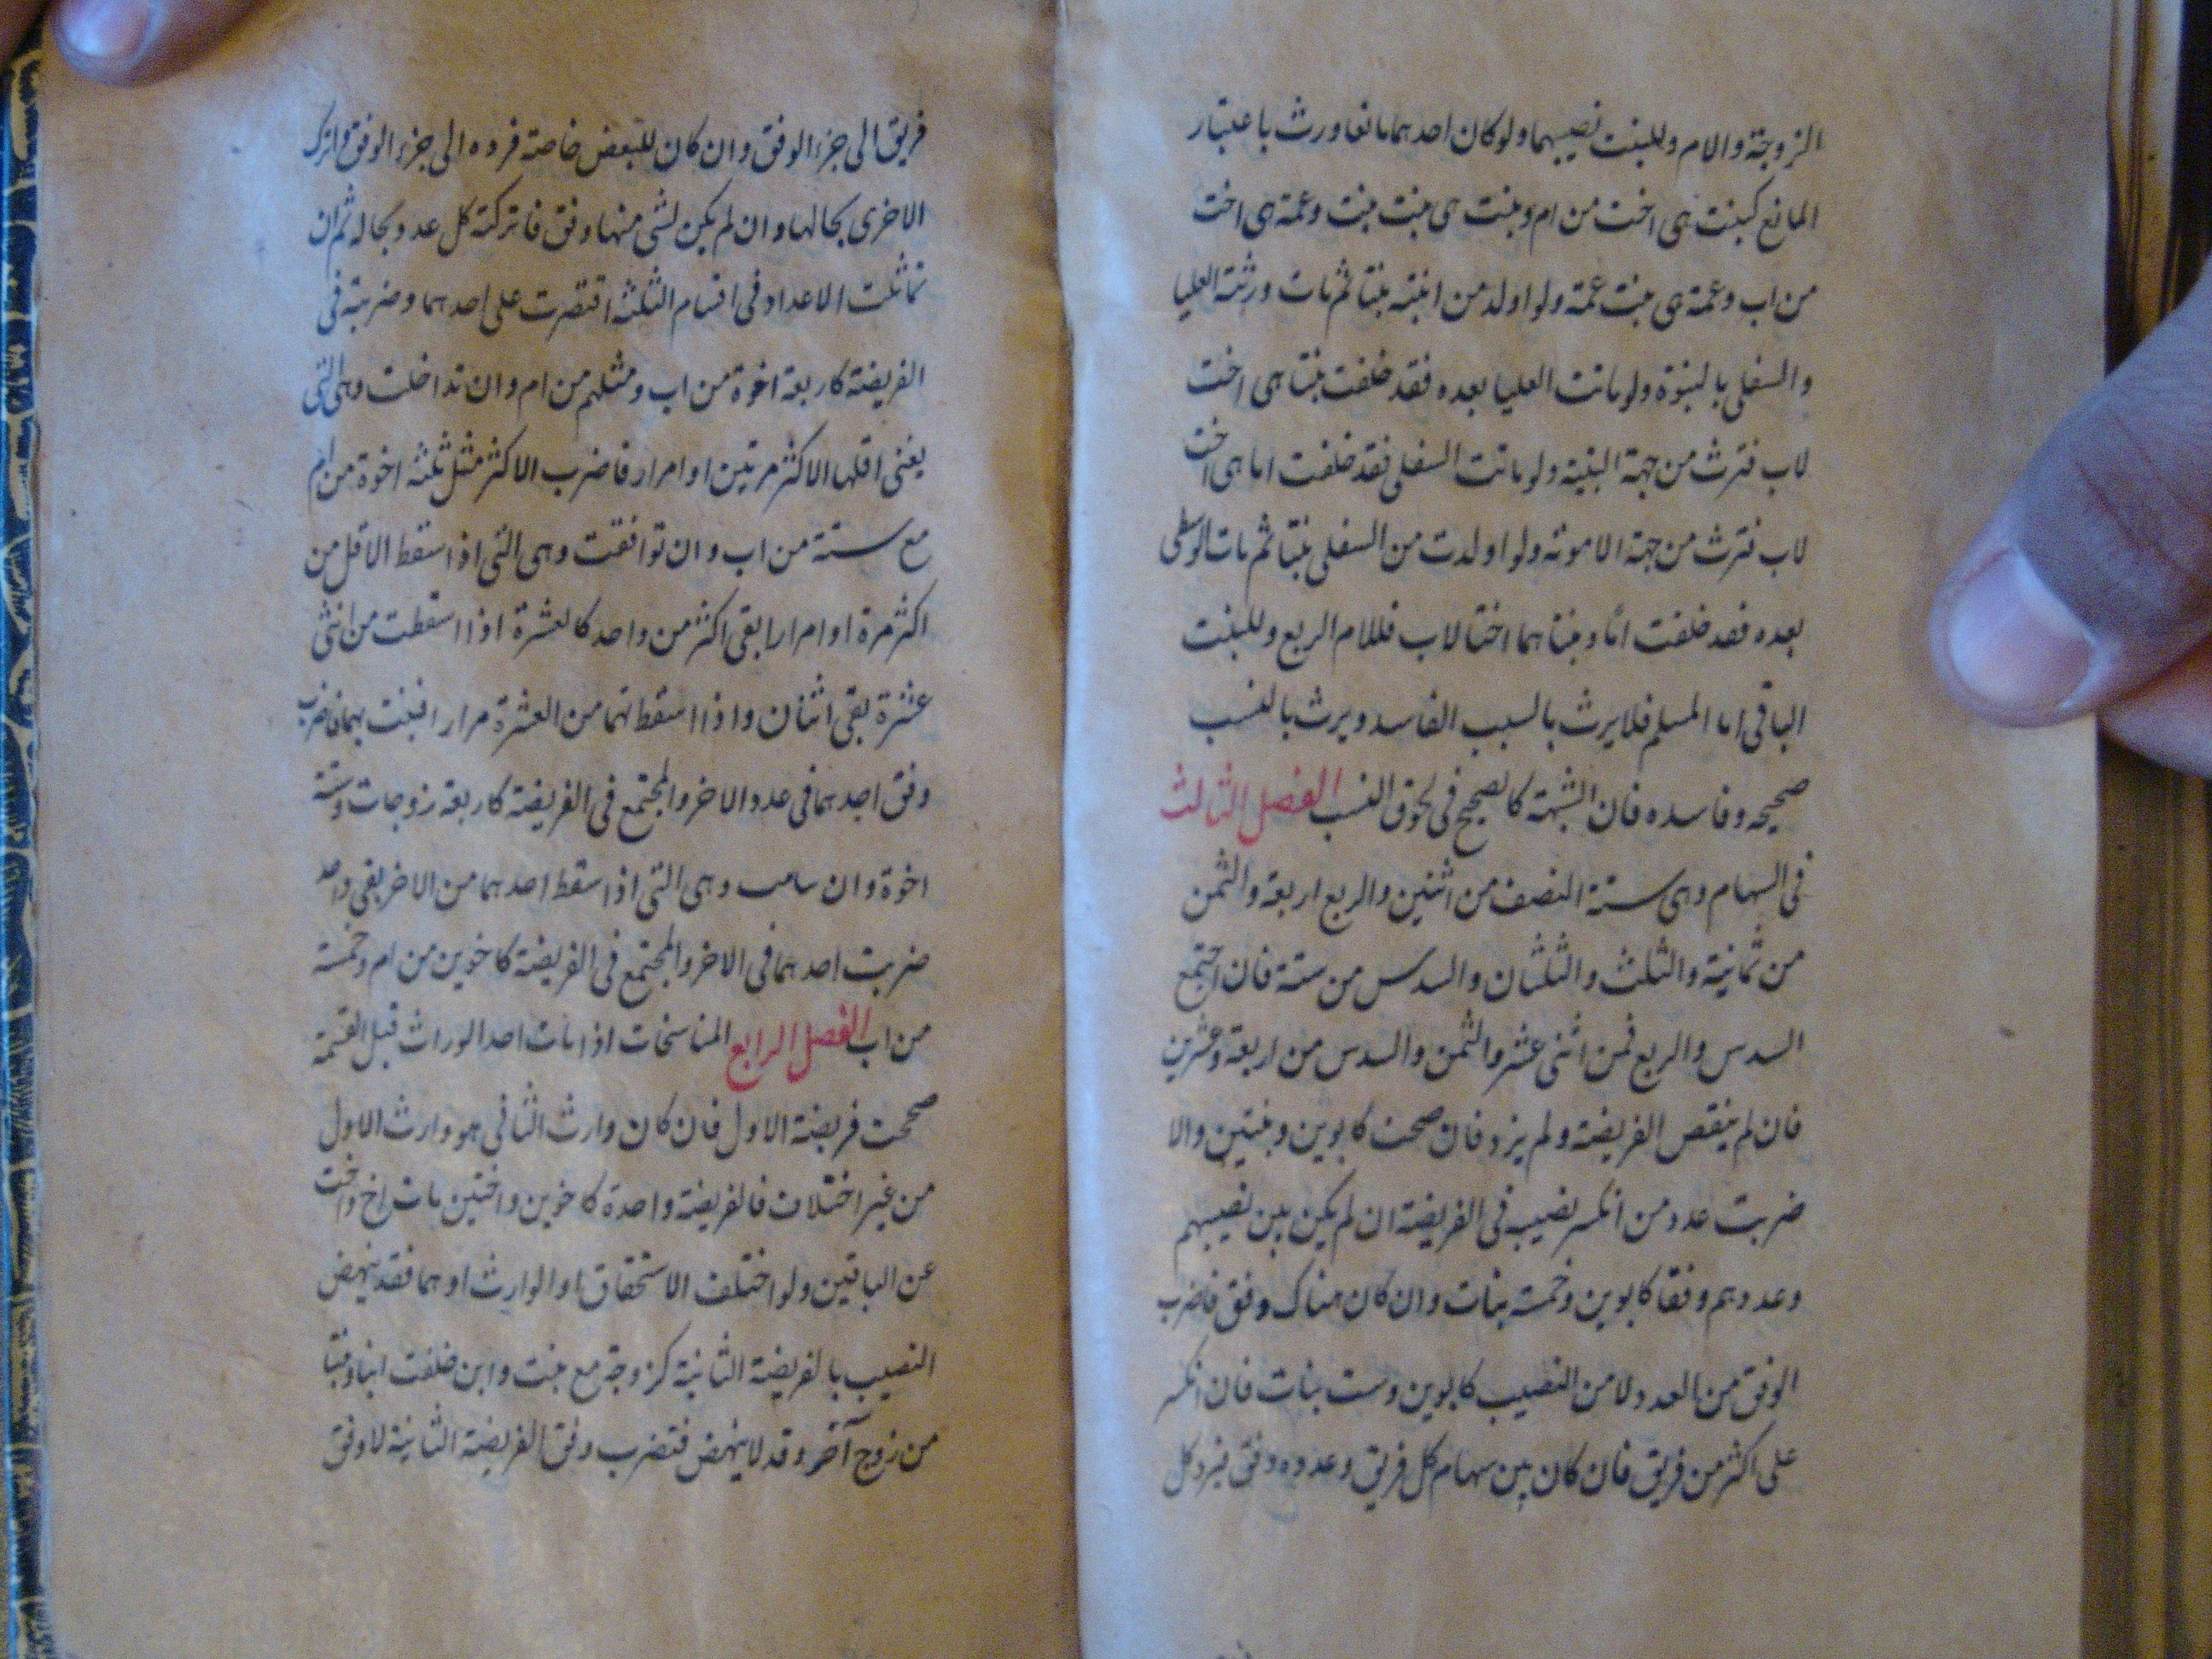 الزوجة والام وللبنت نصيبهما ولو كان احدهما مانعا ورث باعتبار
المانع كبنت هى اخت من ام وبنت هى بنت بنت وعمة هى اخت
من اب وعمة هى بنت عمة ولو اولد من ابنته بنتا ثم مات ورثته العليا
والسفلى بالبنوة ولو ماتت العليا بعده فقد خلفت بنتا هى اخت
لاب فترث من جهة البنتية ولو ماتت السفلى فقد خلفت اما هى اخت
لاب فترث من جهة الامومة ولو اولدت من السفلى بنتا ثم مات الوسطى
بعده فقد خلفت اما وبنتا هما اختا لاب فللام الربع وللبنت
الباقى اما المسلم فلا يرث بالسبب الفاسد ويرث بالنسب
صحيحه وفاسده فان الشبهة كالصحيح فى لحوق النسب الفصل الثالث
فى السهام وهى ستة النصف من اثنين والربع اربعة والثمن
من ثمانية والثلث والثلثان والسدس من ستة فان اجتمع
السدس والربع فمن اثنى عشر والثمن والسدس من اربعة وعشرين
فان لم ينقص الفريضة ولم يزد فان صحت كابوين وبنتين والا
ضربت عدد من انكسر نصيبه فى الفريضة ان لم يكن بين نصيبهم
وعددهم وفقا كابوين وخمسة بنات وان كان هناك وفق فاضرب
الوفق من العدد لا من النصيب كابوين وست بنات فان انكسر
على اكثر من فريق فان كان بين سهام كل فريق وعدده وفق فرد كل
فريق الى جزء الوفق وان كان للبعض خاصة فرده الى جزء الوفق واترك
الاخرى بحالها وان لم يكن لشى منها وفق فاتركت كل عدد بحاله ثم ان
تماثلت الاعداد فى اقسام الثلثة اقتصرت على احدهما وضربته فى
الفريضة كاربعة اخوة من اب ومثلهم من ام وان تداخلت وهى التى
يعنى اقلها الاكثر مرتين او امرار فاضرب الاكثر مثل ثلثة اخوة من ام
مع ستة من اب وان توافقت وهى التى اذا سقط الاقل من
اكثر مرة او امرارا بقى اكثر من واحد كالعشرة اذا اسقطت من اثنى
عشرة بقى اثنان واذا اسقطتهما من العشرة مرارا فنيت بهما فاضرب
وفق احدهما فى عدد الاخر والمجتمع فى الفريضة كاربعة زوجات وستة
اخوة وان وهى التى اذا سقط احدهما من الاخر بقى واحد
ضربت احدهما فى الاخر والمجتمع فى الفريضة كاخوين من ام وخمسة
من اب الفصل الرابع المناسخات اذا مات احد الوراث قبل القسمة
صححت فريضة الاول فان كان وارث الثانى هو وارث الاول
من غير اختلاف فالفريضة واحدة كاخوين واختين مات اخ واخت
عن الباقين ولو اختلف الاستحقاق او الوارث او هما فقد ينهض
النصيب بالفريضة الثانية كزوجة مع بنت وابن خلفت ابنا وبنتا
من زوج آخر وقد لا ينهض فتضرب وفق الفريضة الثانية لا وفق